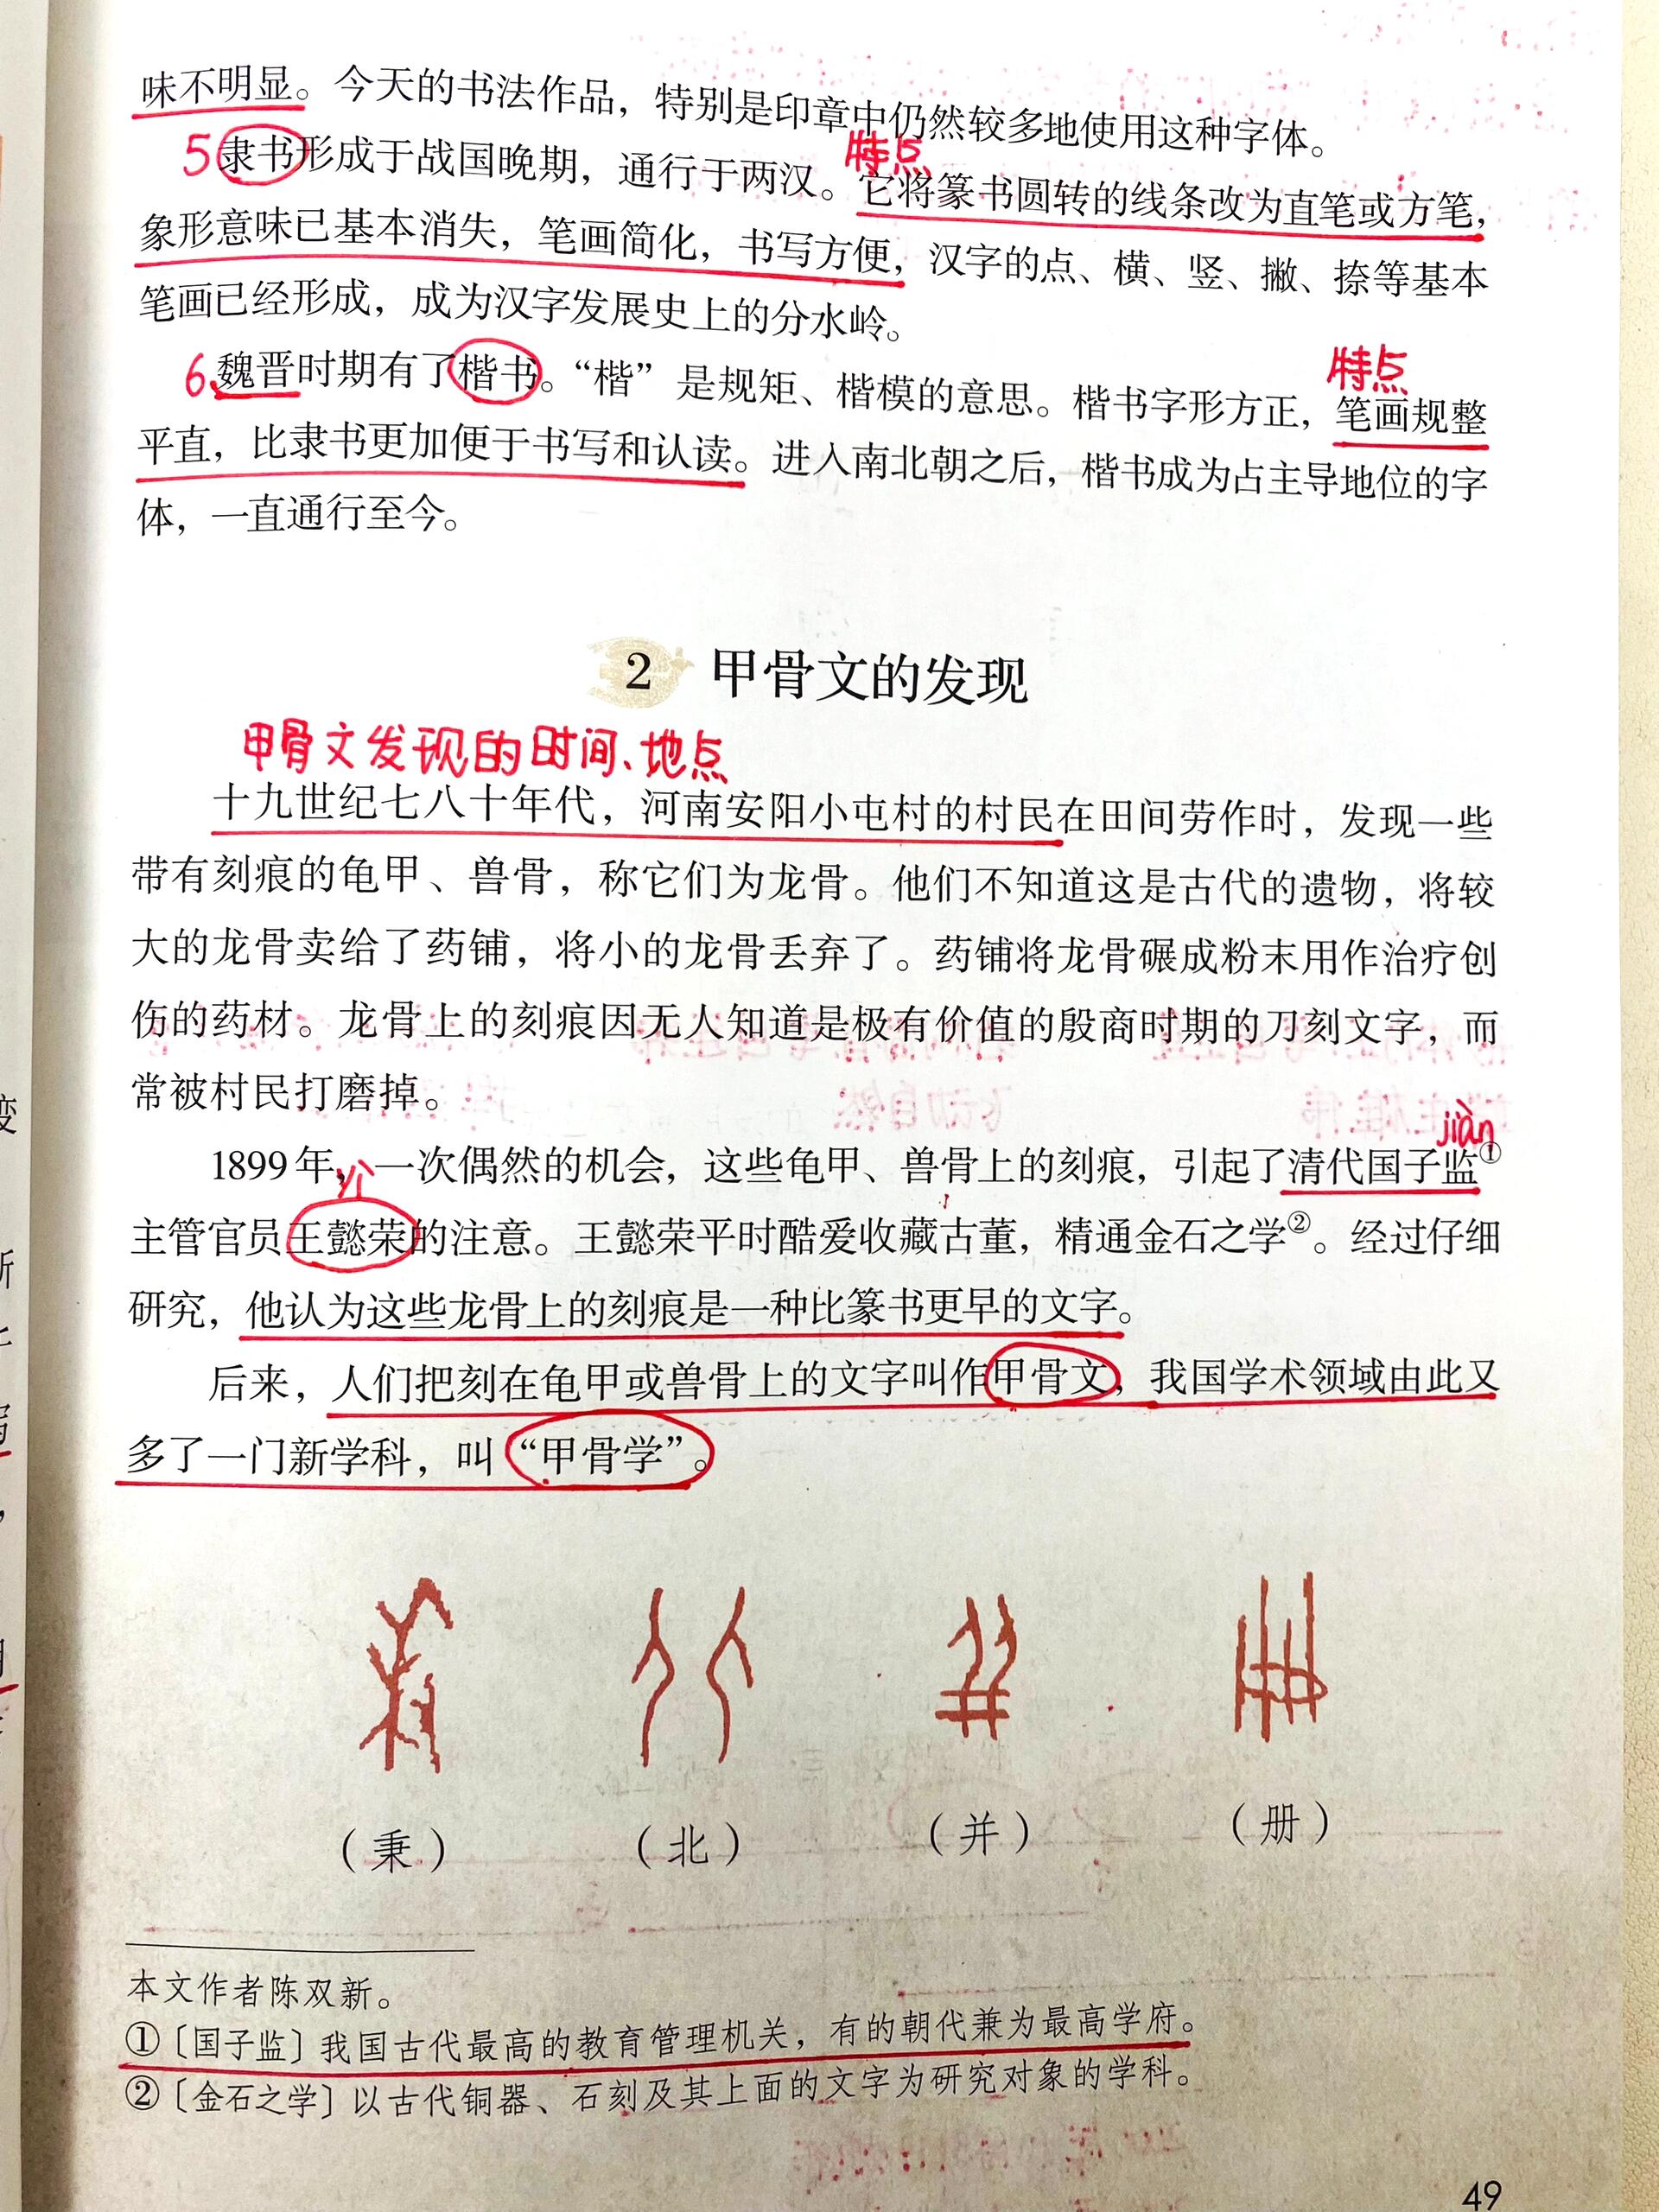 味不明显。今天的书法作品，特别是印章中仍然较多地使用这种字体。
特点
5隶书形成于战国晚期，通行于两汉。它将篆书圆转的线条改为直笔或方笔，
象形意味已基本消失，笔画简化，书写方便，汉字的点、横、竖、撇、捺等基本
笔画已经形成，成为汉字发展史上的分水岭。
特点
6.魏晋时期有了楷书。“楷”是规矩、楷模的意思。楷书字形方正，笔画规整
平直，比隶书更加便于书写和认读。进入南北朝之后，楷书成为占主导地位的字
体，一直通行至今。
2 甲骨文的发现
甲骨文发现的时间、地点
十九世纪七八十年代，河南安阳小屯村的村民在田间劳作时，发现一些
带有刻痕的龟甲、兽骨，称它们为龙骨。他们不知道这是古代的遗物，将较
大的龙骨卖给了药铺，将小的龙骨丢弃了。药铺将龙骨碾成粉末用作治疗创
伤的药材。龙骨上的刻痕因无人知道是极有价值的殷商时期的刀刻文字，而
常被村民打磨掉。
jiàn
1899年，一次偶然的机会，这些龟甲、兽骨上的刻痕，引起了清代国子监①
主管官员王懿荣的注意。王懿荣平时酷爱收藏古董，精通金石之学②。经过仔细
研究，他认为这些龙骨上的刻痕是一种比篆书更早的文字。
后来，人们把刻在龟甲或兽骨上的文字叫作甲骨文，我国学术领域由此又
多了一门新学科，叫“甲骨学”。
（秉） （北） （并） （册）
本文作者陈双新。
①〔国子监〕我国古代最高的教育管理机关，有的朝代兼为最高学府。
②〔金石之学〕以古代铜器、石刻及其上面的文字为研究对象的学科。
49